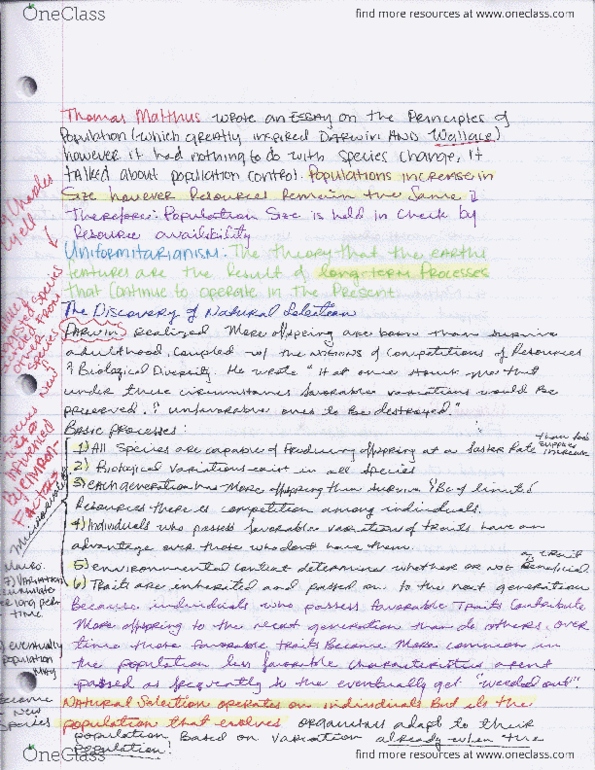 OneClass
find more resources at www.oneclass.com
Thomas Malthus wrote an ESSAY on the Principles of
Population (which greatly inspired DARWIN AND Wallace)
however it had nothing to do with species change, it
talked about population control. Populations increase in
Size however Resources Remain the Same
Therefore: Population Size is held in check by
Resource availibility
Uniformitarianism: The theory that the earths
features are the Result of long-term Processes
that continue to operate in The Present
The Discovery of Natural Selection
Darwin Realized More offspring are born than survive
adulthood, coupled w/ the notions of Competitions of Resources
& Biological Diversity. He wrote "It at once struck me that
under these circumstances favorable variations would be
preserved & unfavorable ones to be destroyed"
Basic Processes:
1) All Species are capable of Producing offspring at a faster Rate than food supplies increase
2) Biological variations exist in all species
3) each generation has More offspring than survive & Bc of limited
Resources there is competition among individuals.
4) Individuals who possess favorable variation of traits have an
advantage over those who dont have them.
5) environmental context determines whether or not a trait is Beneficial
6) Traits are inherited and passed on to the next generation
Because individuals who possess favorable Traits Contribute
More offspring to the next generation than do others. over
time those favorable traits Become More common in
the population less favorable characteristics arent
passed as frequently so the eventually get "weeded out".
Natural Selection operates on individuals But its the
population that evolves organisms adapt to their
population Based on variation already when the
population!
by Charles
Lyell
Species
From
other
Species
New
Species
influenced
By environ.
Factors
Macro:
7) Variation
accumulate
over long per of
time
8) eventually
Population
May
Become
New
Species
OneClass
find more resources at www.oneclass.com